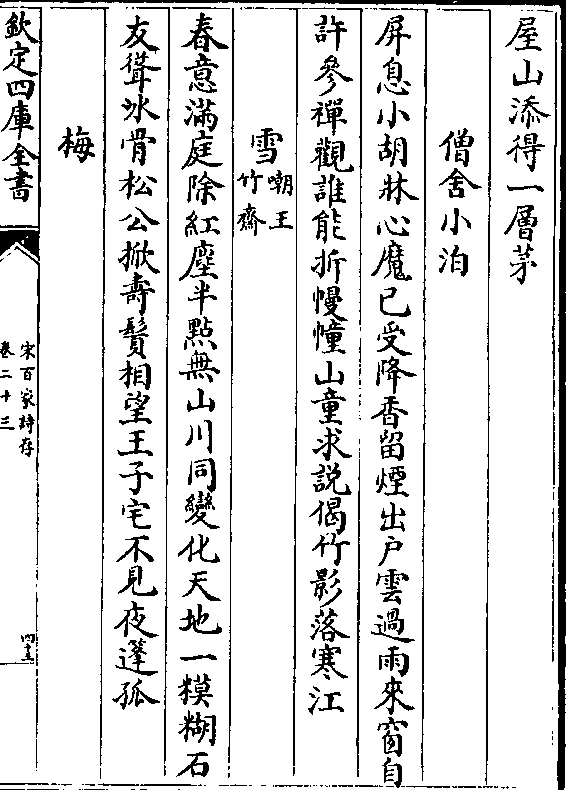 屋山添得一層茅
僧舍小泊
屏息小胡牀心魔已受降香留煙出戶雲過雨來窗自
許參禪觀誰能折幔幢山童求說偈竹影落寒江
雪嘲王竹齋
春意滿庭除紅塵半點無山川同變化天地一糢糊石
友聳冰骨松公掀壽鬚相望王子宅不見夜篷孤
梅
欽定四庫全書
宋百家詩存
卷二十三